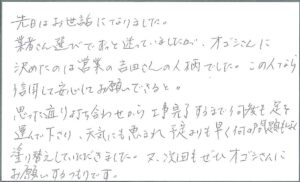 先日はお世話になりました。
業者さん選びでずっと迷っていましたが、オゴシさんに
決めたのは営業の吉田さんの人柄でした。この人なら
信用して安心してお願いできると。
思った通り打ち合わせから工事完了するまで何度も足を
運んで下さり、天気にも恵まれ予定よりも早く何の問題もなく
塗り替えしていただきました。又、次回もぜひオゴシさんに
お願いするつもりです。